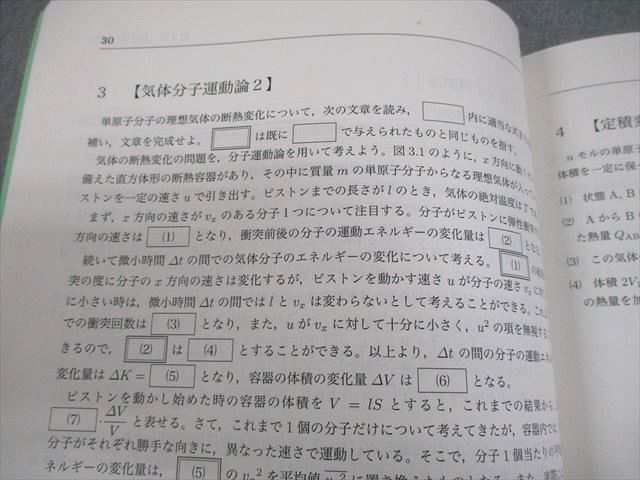 30
3 【気体分子運動論2】
単原子分子の理想気体の断熱変化について，次の文章を読み， 内に適当な式または
補い，文章を完成せよ。 は既に で与えられたものと同じものを指す。
気体の断熱変化の問題を，分子運動論を用いて考えよう。図3.1のように，x方向に動く
備えた直方体形の断熱容器があり，その中に質量mの単原子分子からなる理想気体が入って
ストンを一定の速さuで引き出す。ピストンまでの長さがlのとき，気体の絶対温度は
まず，x方向の速さがvxのある分子1つについて注目する。分子がピストンに弾性衝突
方向の速さは (1) となり，衝突前後の分子の運動エネルギーの変化量は (2) となる。
続いて微小時間Δtの間での気体分子のエネルギーの変化について考える。 (1)
突の度に分子のx方向の速さは変化するが，ピストンを動かす速さuが分子の速さvxに
に小さい時は，微小時間Δtの間ではlとvxは変わらないとして考えることができる。
での衝突回数は (3) となり，また，uがvxに対して十分に小さく，u²の項を無視する
きるので， (2) は (4) とすることができる。以上より，Δtの間の分子の運動エネ
変化量はΔK = (5) となり，容器の体積の変化量ΔVは (6) となる。
ピストンを動かし始めた時の容器の体積をV = lSとすると，これまでの結果から，
(7) ·ΔV/V と表せる。さて，これまで1個の分子だけについて考えてきたが，容器内では
分子がそれぞれ勝手な向きに，異なった速さで運動している。そこで，分子1個当たりの平均
ネルギーの変化量は， (5) のvx²を平均値
4 【定積変
nモルの単原子
体積を一定に保
(1) 状態A，B
(2) AからB
た熱量QAB
(3) この気体
(4) 体積2V
の熱量を加